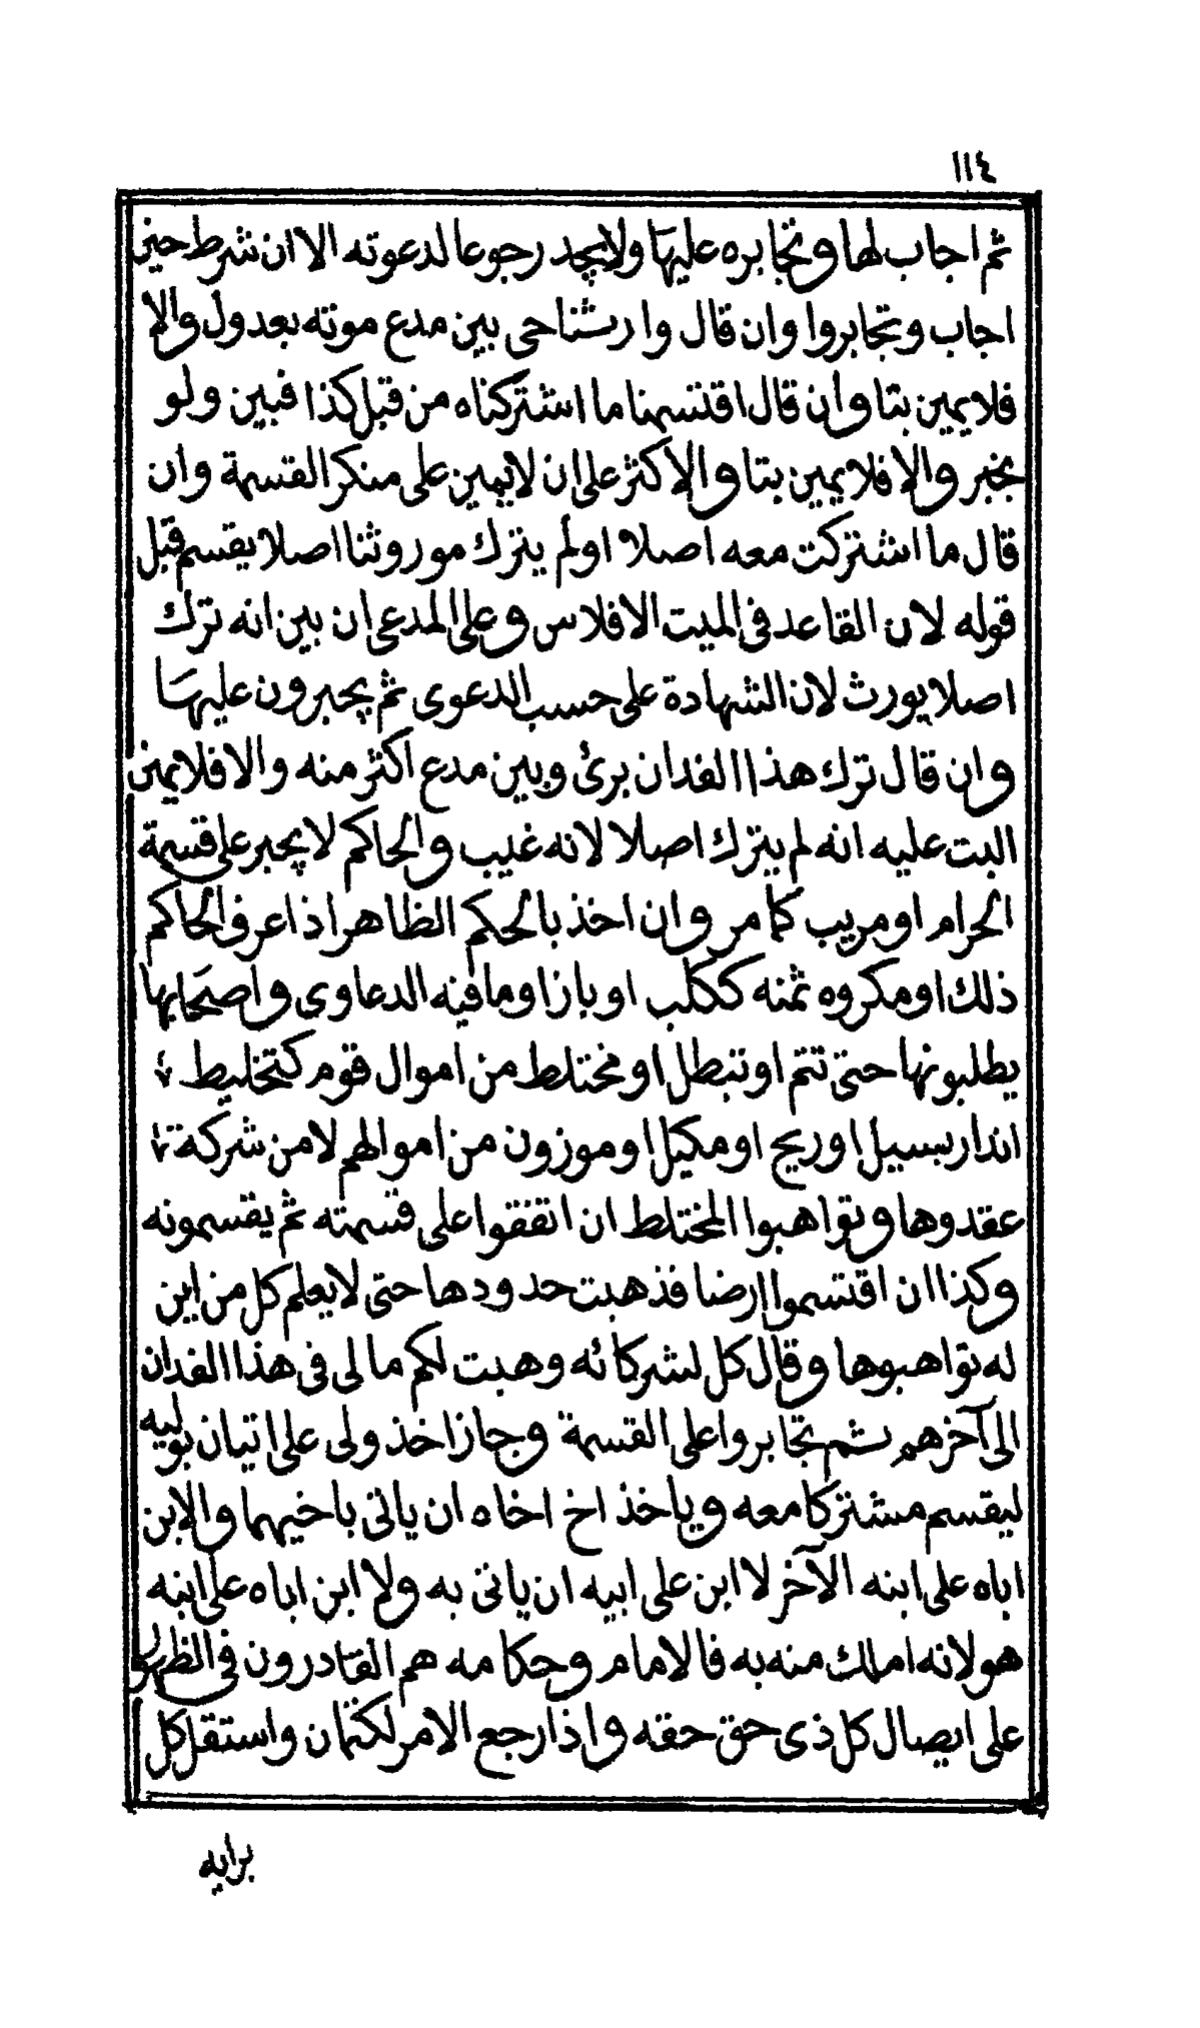 ١١٤
ثم اجاب لها وتجابره عليها ولايجد رجوعا لدعوته الا ان شرط حين
اجاب وتجابروا وان قال وارثنا حى بين مدع موته بعدول والا
فلا يمين بتا وان قال اقتسمنا ما اشتركناه من قبل كذا فبين ولو
بخبر والا فلا يمين بتا والاكثر على ان لا يمين على منكر القسمة وان
قال ما اشتركت معه اصلا او لم يترك موروثنا اصلا يقسم قبل
قوله لان القاعد فى الميت الافلاس وعلى المدعى ان بين انه ترك
اصلا يورث لان الشهادة على حسب الدعوى ثم يجبرون عليها
وان قال ترك هذا الفدان برئ وبين مدع اكثر منه والا فلا يمين
البت عليه انه لم يترك اصلا لانه غيب والحاكم لا يجبر على قسمة
الحرام او مريب كما مر وان اخذ بالحكم الظاهر اذا عرف الحاكم
ذلك او مكروه ثمنه ككلب او باز او ما فيه الدعاوى واصحابها
يطلبونها حتى تتم او تبطل او مختلط من اموال قوم كتخليط
اندار بسيل او ريح او مكيل او موزون من اموالهم لا من شركة
عقدوها وتواهبوا المختلط ان اتفقوا على قسمته ثم يقسمونه
وكذا ان اقتسموا ارضا فذهبت حدودها حتى لا يعلم كل من اين
له تواهبوها وقال كل لشركائه وهبت لكم ما لى فى هذا الفدان
الى آخرهم ثم تجابروا على القسمة وجاز اخذ ولى على اتيان بوليه
ليقسم مشتركا معه وياخذ اخ اخاه ان ياتى باخيهما والابن
اباه على ابنه الآخر لا ابن على ابيه ان ياتى به ولا ابن اباه على ابنه
هو لانه املك منه به فالامام وحكامه هم القادرون فى الظهور
على ايصال كل ذى حق حقه واذا رجع الامر لكتمان واستقل كل
برايه